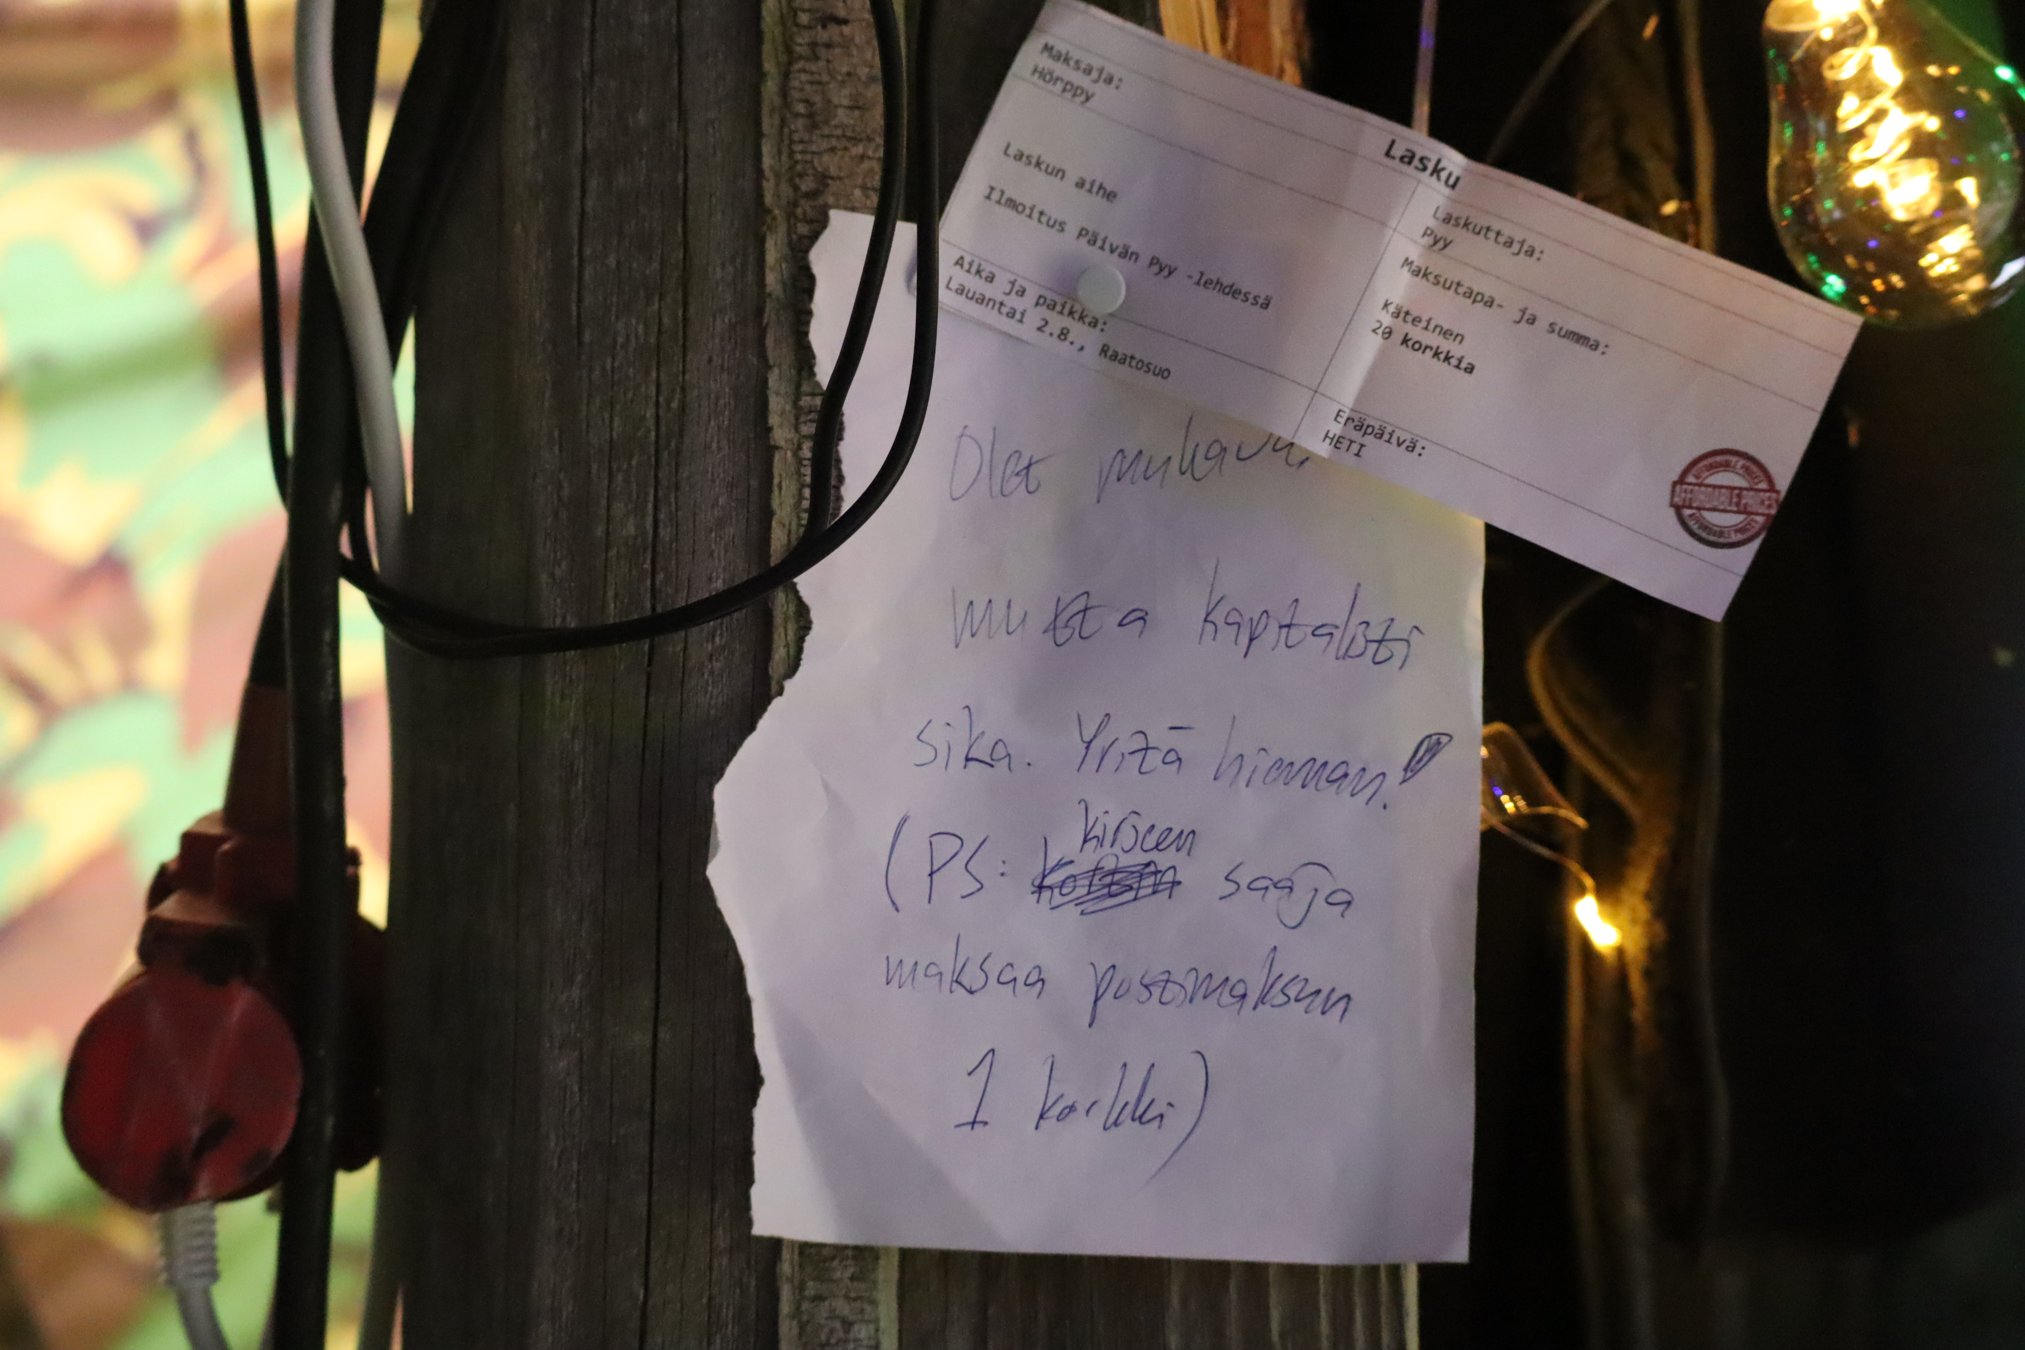 Lasku
Maksaja:
Hörppy
Laskuttaja:
Pyy
Laskun aihe
Ilmoitus Päivän Pyy -lehdessä
Maksutapa- ja summa:
Käteinen
20 korkkia
Aika ja paikka:
Lauantai 2.8., Raatosuo
Eräpäivä:
HETI
AFFORDABLE PRICES
AFFORDABLE PRICES
AFFORDABLE PRICES
Olet
mutta kapitalisti
sika. Yritä hieman!
(PS: kirjeen saaja
maksaa postimaksun
1 korkki)